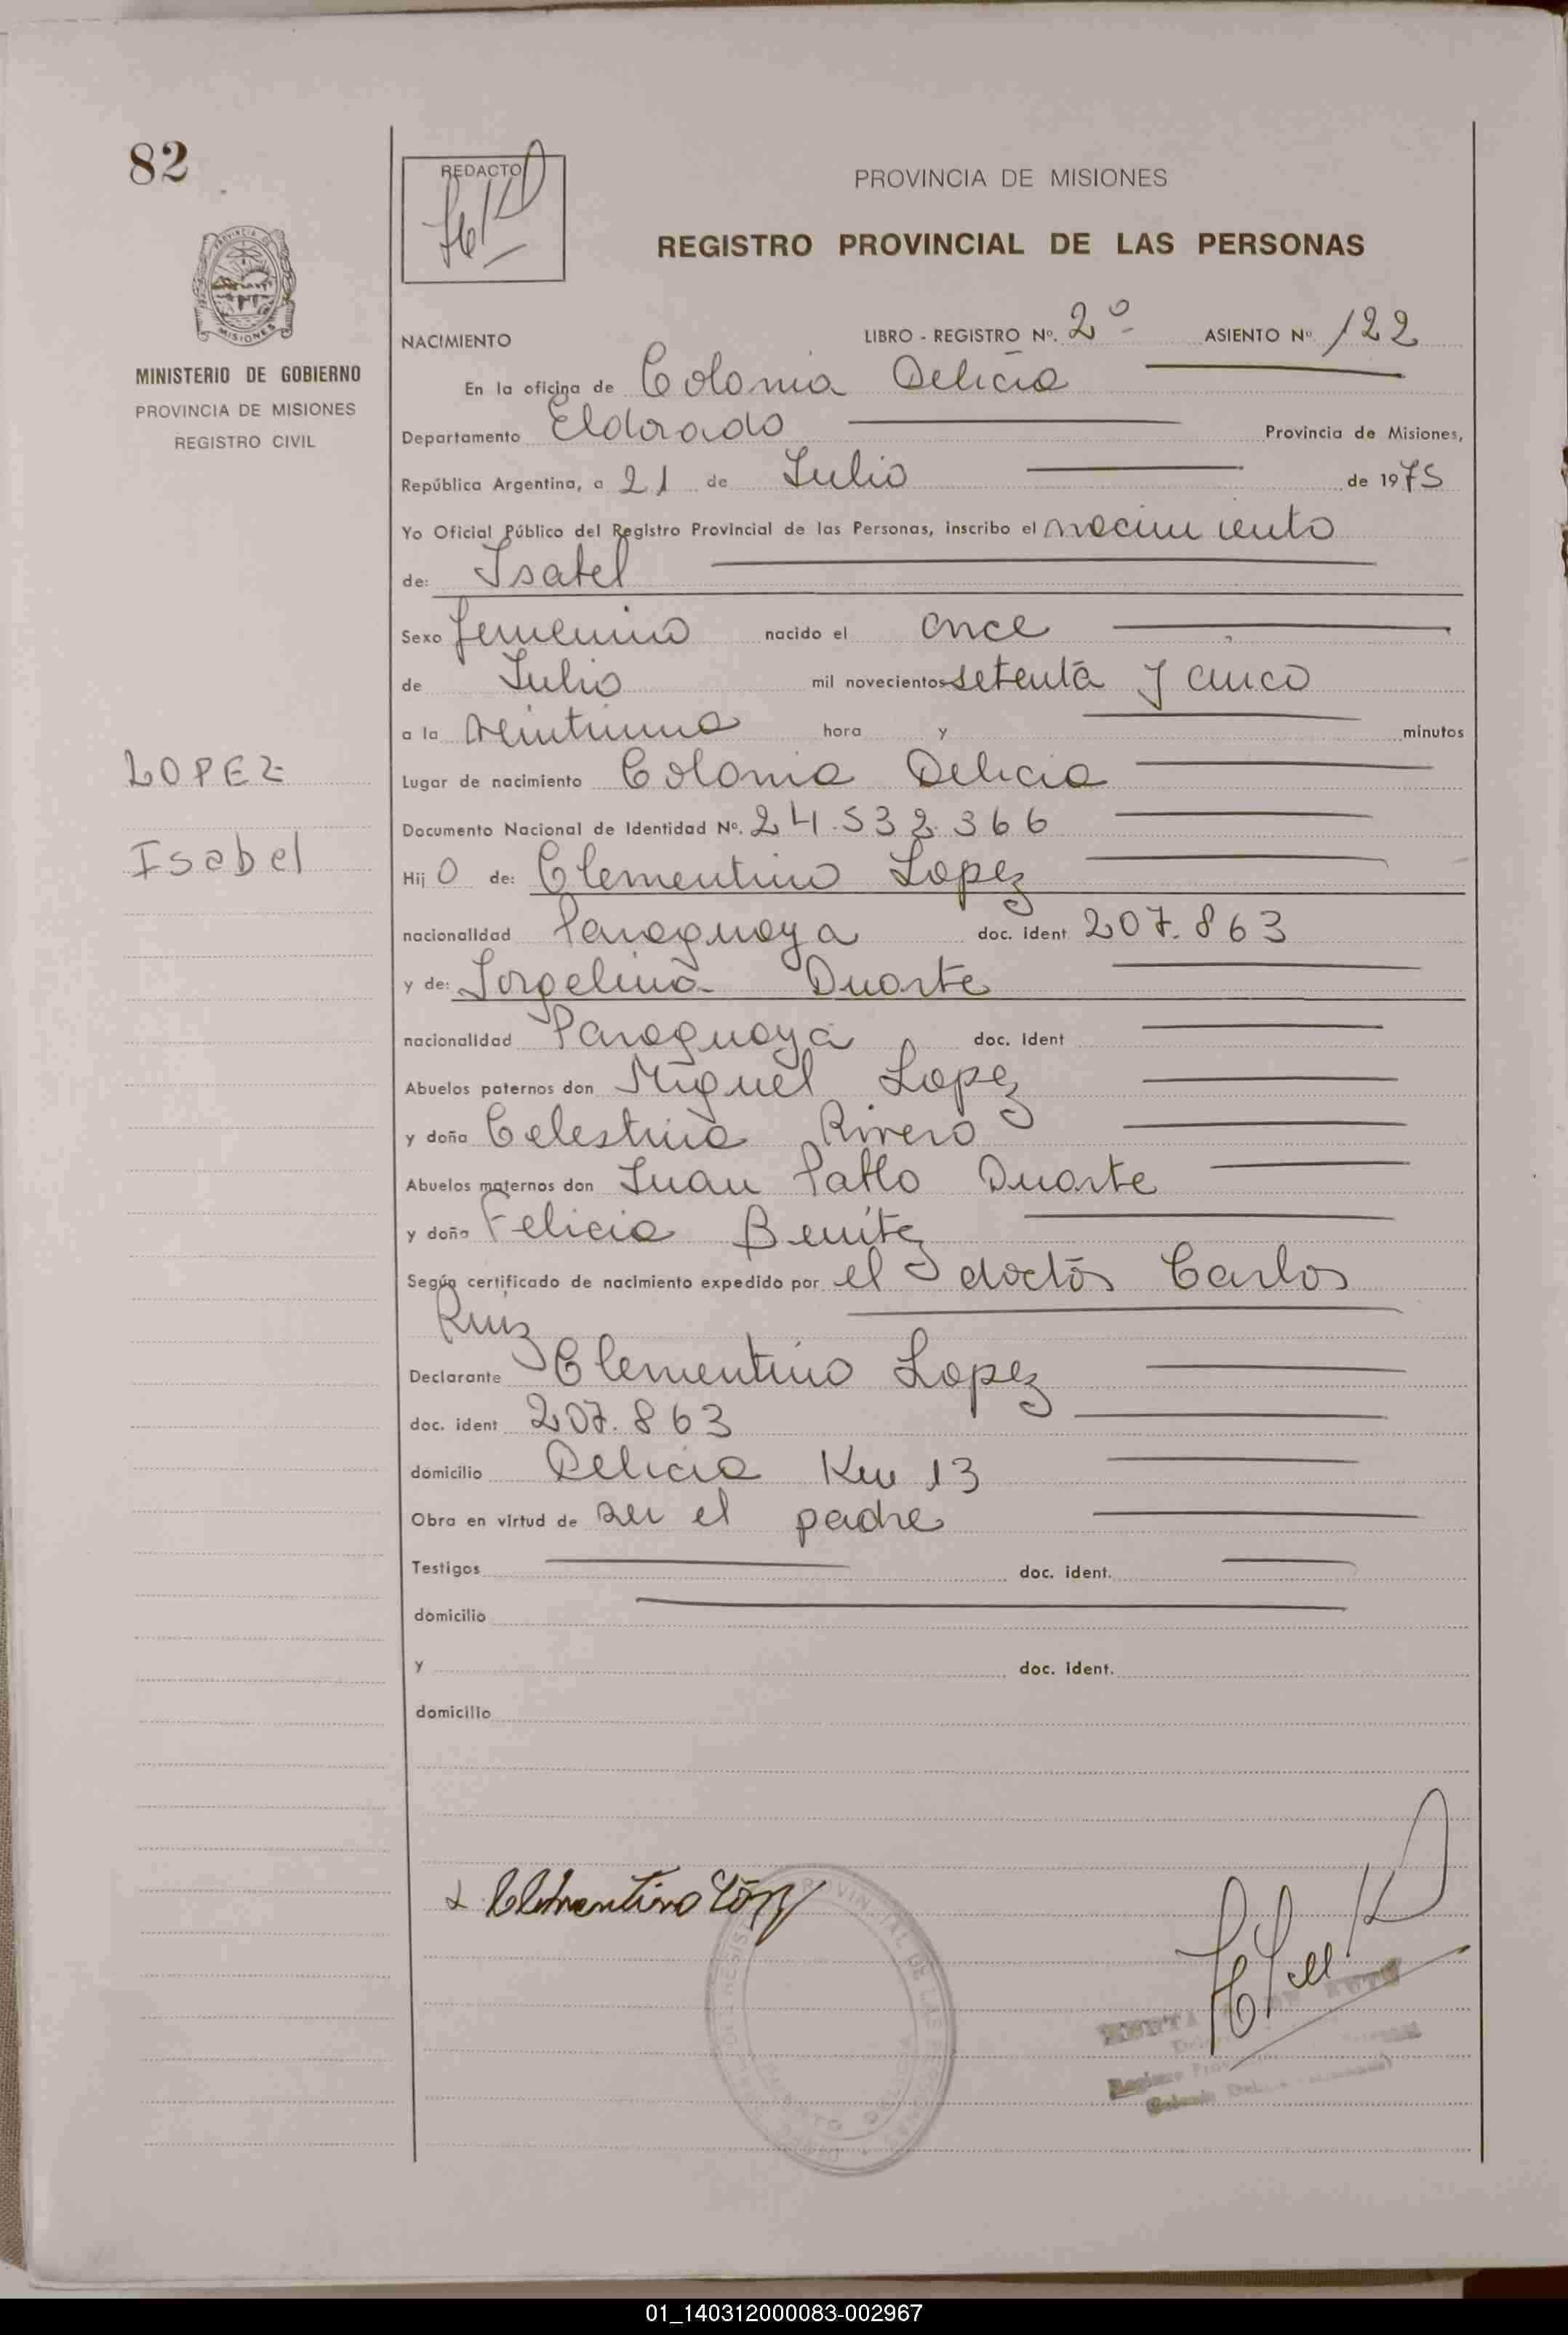 82
REDACTO
PROVINCIA DE MISIONES
REGISTRO PROVINCIAL DE LAS PERSONAS
MISIONES
MINISTERIO DE GOBIERNO
PROVINCIA DE MISIONES
REGISTRO CIVIL
NACIMIENTO LIBRO - REGISTRO Nº. 2º ASIENTO Nº 122
En la oficina de Colonia Delicia
Departamento Eldorado Provincia de Misiones,
República Argentina, a 21 de Julio de 1975
Yo Oficial Público del Registro Provincial de las Personas, inscribo el nacimiento
de: Isabel
Sexo femenino nacido el once
de Julio mil novecientos setenta y cinco
a la veintiuna hora y minutos
LOPEZ
Isabel
Lugar de nacimiento Colonia Delicia
Documento Nacional de Identidad Nº. 24.532.366
Hij a de: Clementino Lopez
nacionalidad Paraguaya doc. ident 207.863
y de: Jorgelina Duarte
nacionalidad Paraguaya doc. ident
Abuelos paternos don Miguel Lopez
y doña Celestina Rivero
Abuelos maternos don Juan Pablo Duarte
y doña Felicia Benitez
Según certificado de nacimiento expedido por el doctor Carlos
Ruiz
Declarante Clementino Lopez
doc. ident 207.863
domicilio Delicia Km 13
Obra en virtud de ser el padre
Testigos doc. ident.
domicilio
y doc. ident.
domicilio
Clementino Lópz
01_140312000083-002967